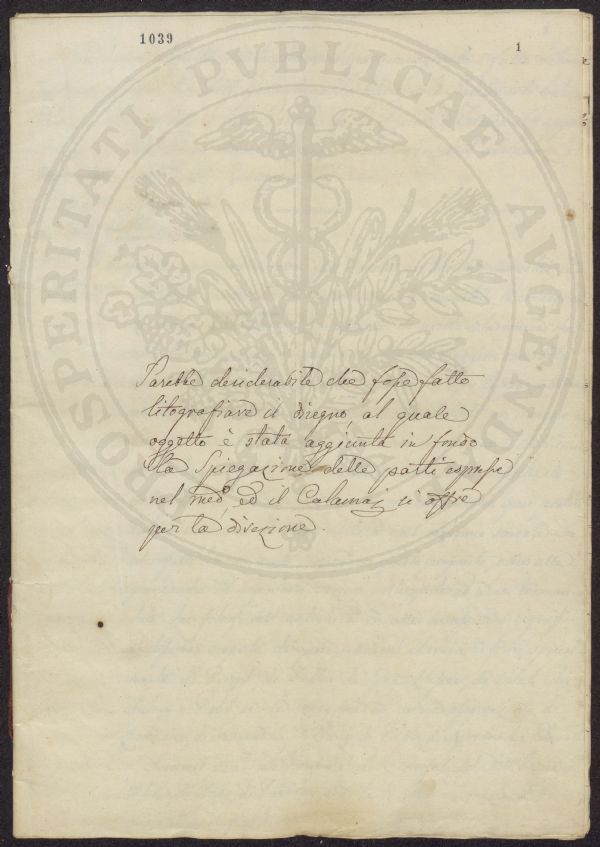 1039
1
PROSPERITATI PVBLICAE AVGENDAE
Sarebbe desiderabile che fosse fatto
litografiare il disegno, al quale
oggetto è stata aggiunta in fondo
la Spiegazione delle parti espresse
nel med.º, ed il Calamai si offre
per la direzione.